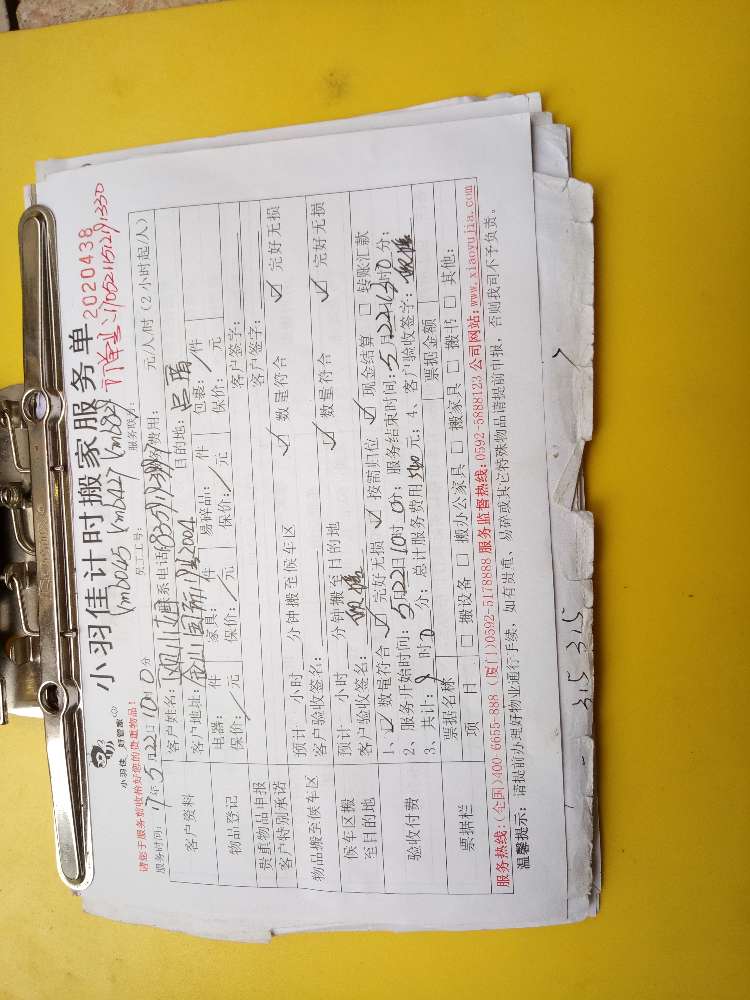 小羽佳 好管家
小羽佳计时搬家服务单 2020438
请您于服务前收拾好您的贵重物品！
员工工号: 服务联
服务时间: 17年5月22日10时0分 元/人/时（2小时起/人）
客户资料
客户姓名: 联系电话 费用:
客户地址: 2004 目的地:
物品登记
电器: 件 家具: 件 易碎品: 件 包裹: 件
保价: 元 保价: 元 保价: 元 保价: 元
贵重物品申报 客户签字:
客户特别承诺 客户签字:
物品搬至候车区
预计 小时 分钟搬至候车区 ✓ 数量符合 ✓ 完好无损
客户验收签名:
候车区搬至目的地
预计 小时 分钟搬至目的地 ✓ 数量符合 ✓ 完好无损
客户验收签名:
验收付费
1、✓ 数量符合 ✓ 完好无损 ✓ 按需归位 ✓ 现金结算 □ 转账汇款
2、服务开始时间: 5月22日10时0分; 服务结束时间: 5月22日 时0分;
3、共计: 时 分; 总计服务费用 元; 4、客户验收签字:
票据栏
票据名称 票据金额
项 目 □ 搬设备 □ 搬办公家具 □ 搬家具 □ 搬书 □ 其他:
服务热线:（全国）400-6655-888（厦门）0592-5178888 服务监督热线:0592-5888123 公司网站:www.xiaoyujia.com
温馨提示: 请提前办理好物业通行手续，如有贵重、易碎或其它特殊物品请提前申报，否则我司不予负责。
315 315